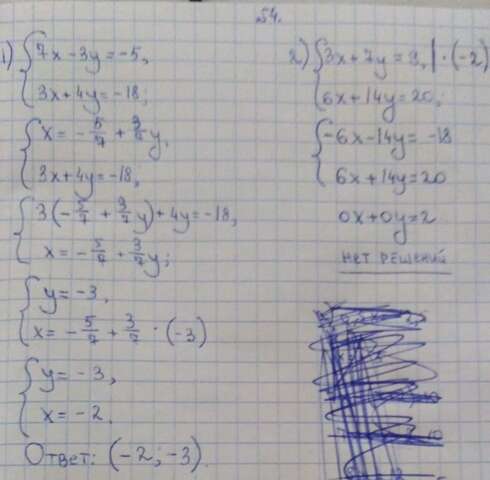 54.
1) { 7x - 3y = -5,
3x + 4y = -18;
{ x = -5/7 + 3/7 y,
3x + 4y = -18,
{ 3(-5/7 + 3/7 y) + 4y = -18,
x = -5/7 + 3/7 y;
{ y = -3,
x = -5/7 + 3/7 · (-3)
{ y = -3,
x = -2.
Ответ: (-2; -3).
2) { 3x + 7y = 9, | · (-2)
6x + 14y = 20;
{ -6x - 14y = -18
6x + 14y = 20
0x + 0y = 2
нет решений